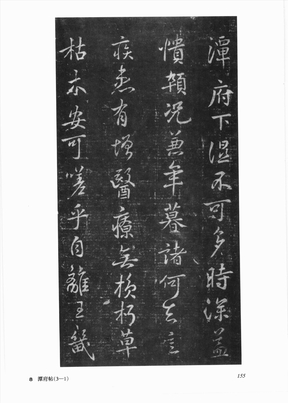 潭府下濕不可多時深益
憒顇況兼年暮諸何足言
疾患有增醫療無損朽草
枯木安可嗟乎自離王畿
8 潭府帖(3—1)
155